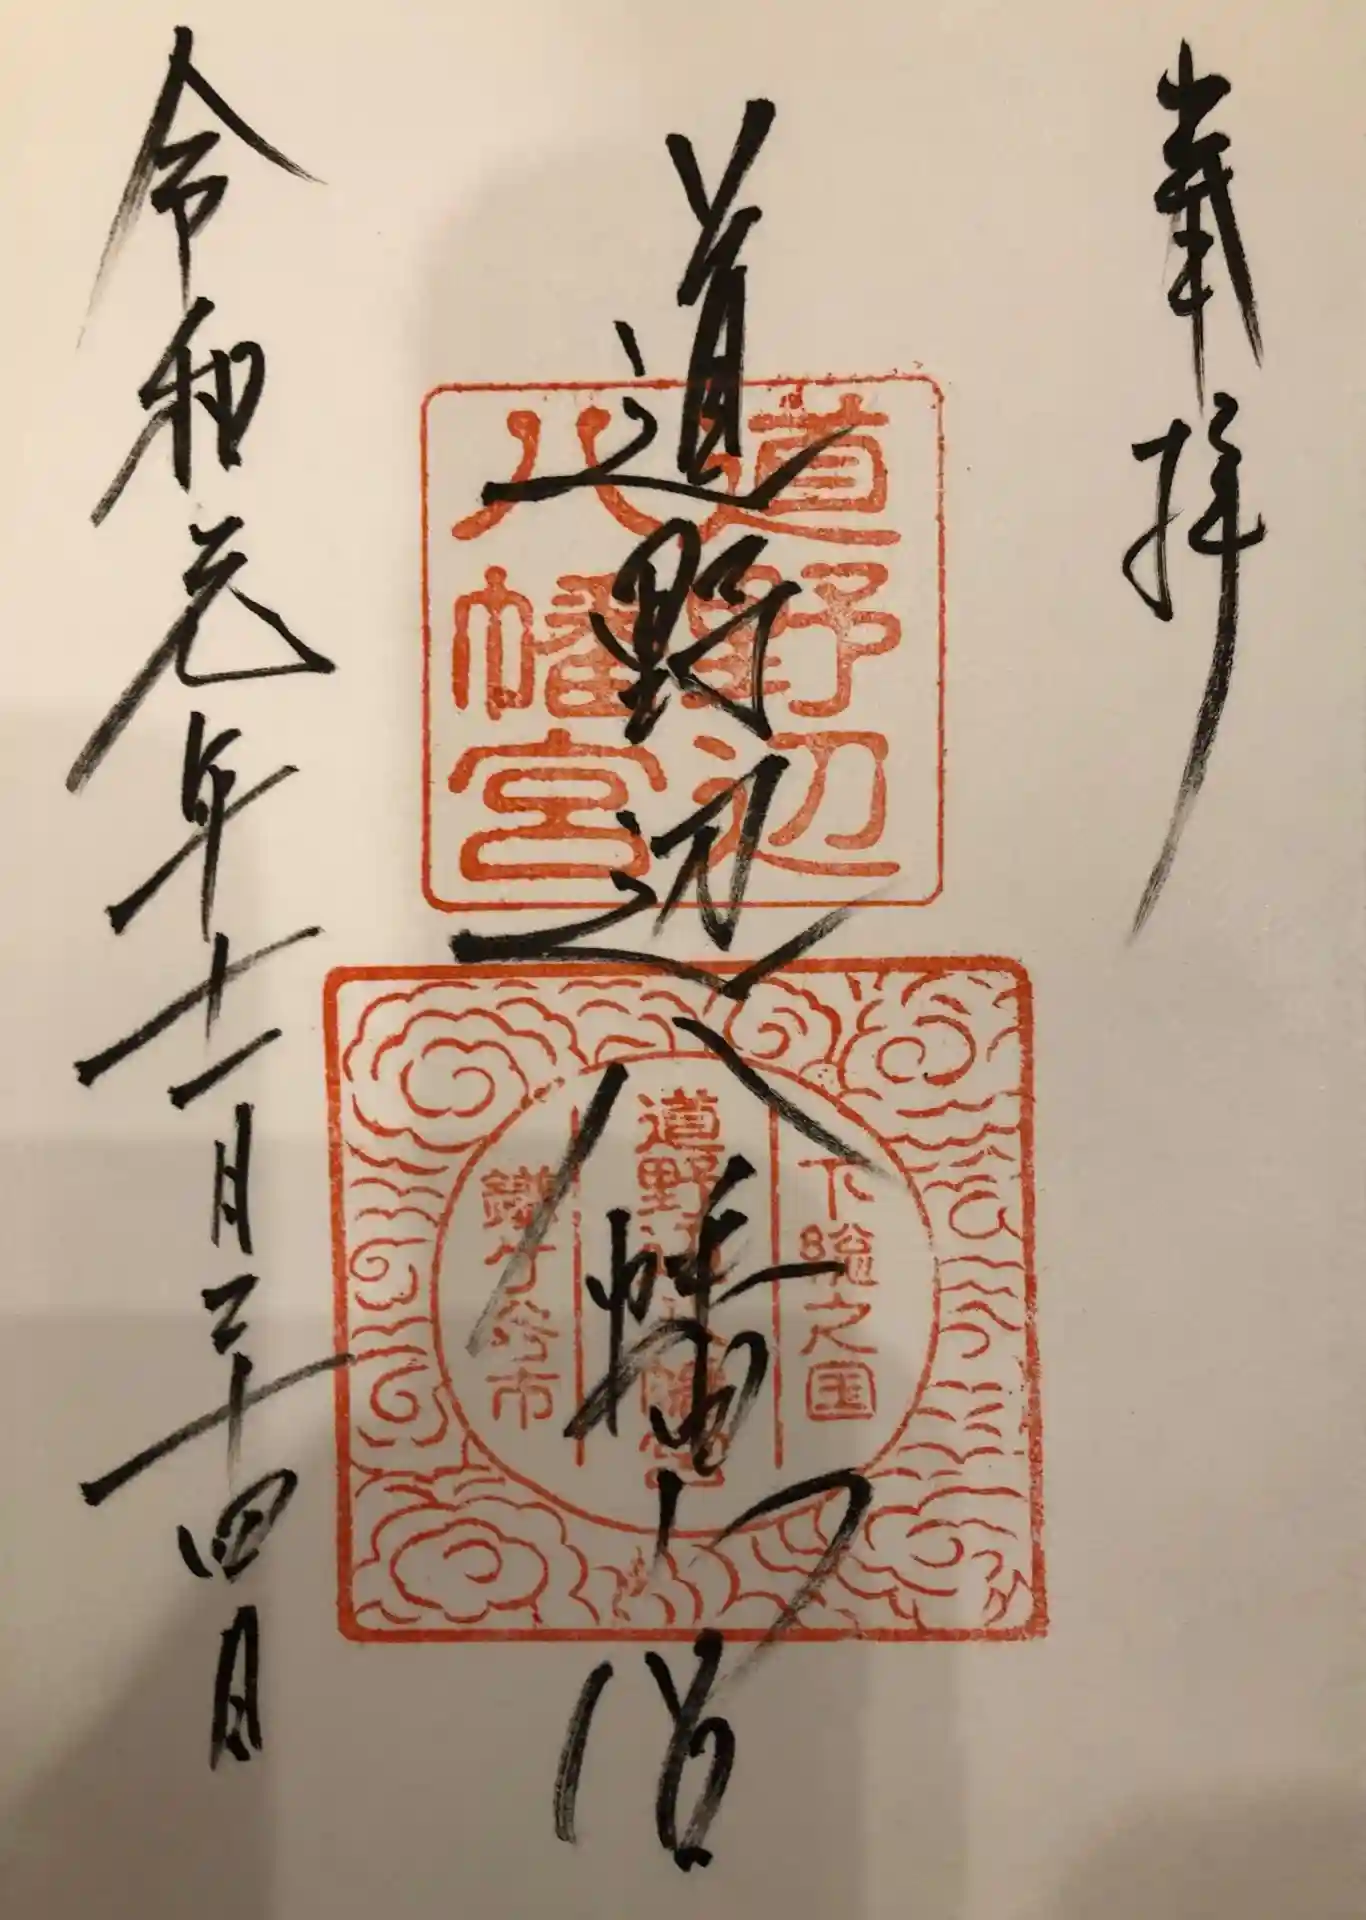 奉拝
道野辺八幡宮
道野辺
八幡宮
下総之国
道野辺八幡宮
鎌ケ谷市
令和元年十一月二十四日